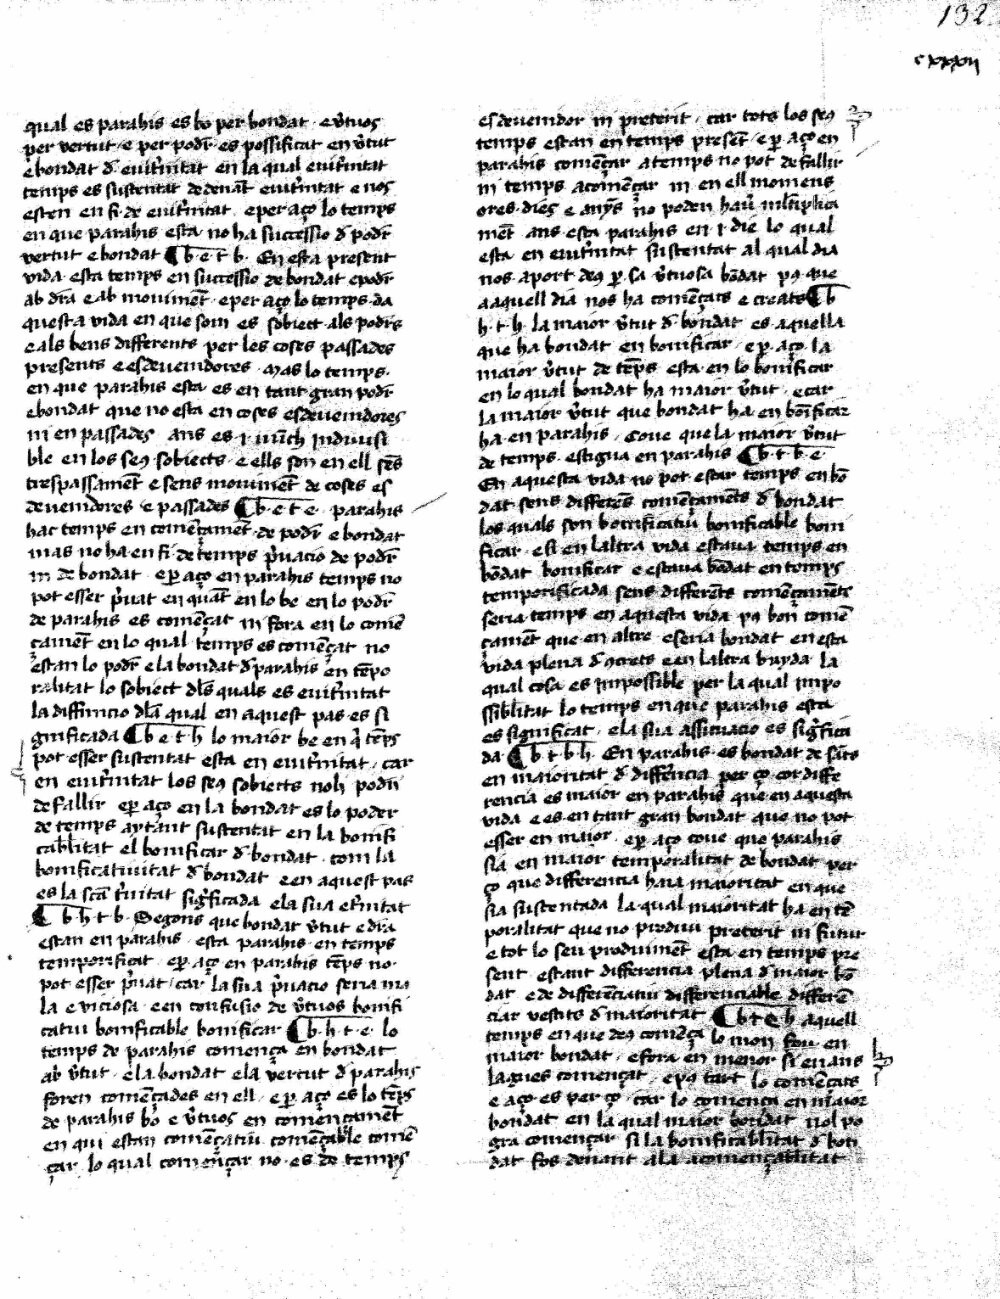 132
cxxxii
qual es parahis es bo per bondat · e v̾tuos
per vertut · e per podr̄ · es possificat en v̾tut
e bondat d̄ euit̾nitat en la qual euit̾nitat
temps es sustentat de denāt euit̾nitat e nos
esten en fi · de euit̾nitat · e per aço lo temps
en que parahis esta no ha successio d̄ podr̄
vertut e bondat ¶ b · e · t · b · En esta present
vida · esta temps en successio de bondat e podr̄
ab dr̄a e ab mouimēt · e per aço lo temps · da
questa vida en que som es sobiect · als podrs
e als bens differents per les coses passades
presents e esdeuenidores · Mas lo temps ·
en que parahis esta es en tant gran podr̄
e bondat que no esta en coses esdeuenidores
ni en passades ans es · i · nūch indiuisi
ble en los seꝯ sobiects · e ells son en ell sēs
trespassamēt e sens mouimēt de coses es
deuenidores e passades ¶ b · e · t · e · parahis
hac temps en comēçamēt · de podr̄ e bondat
mas no ha en fi · de temps p̾uacio de podr̄
ni de bondat · e ꝑ aço en parahis temps no
pot esser p̾uat en quāt en lo be en lo podr̄
de parahis es comēçat ni fora en lo comē
çamēt en lo qual temps es comēçat no
estan lo podr̄ e la bondat d̄ parahis en tēpo
ralitat lo sobiect dl̄s quals es euit̾nitat
la diffinicio dl̄a qual en aquest pas es si
gnificada ¶ b e t h lo maior be en q̄ tēps
pot esser sustentat esta en euit̾nitat · car
en euit̾nitat los seꝯ sobiects noli podē
defallir eꝑ aço en la bondat es lo poder
de temps aytant sustentat en la bonifi
cablitat el bonificar d̄ bondat · com la
bonificatiuitat d̄ bondat e en aquest pas
es la scā t̾nitat sigficada e la sua et̾nitat
¶ b h t b · Segons que bondat v̾tut e dr̄a
estan en parahis · esta parahis en temps
temporificat · eꝑ aço en parahis tēps no ·
pot esser p̾uat · car la sua p̾uacio seria ma
la e viciosa · e en confusio de v̾tuos bonifi
catiu bonificable bonificar ¶ b · h · t · e · lo
temps de parahis comença en bondat
ab v̾tut · e la bondat e la vertut d̄ parahis
foren comēçades en ell · eꝑ aço es lo tēps
de parahis bo e v̾tuos en comēçamēt
en qui estan comēçatiu comēçable comē
çar lo qual començar no · es de temps
esdeuenidor ni preterit · car tots los seꝯ
temps estan en temps presēt · eꝑ aço en
parahis començar a temps no pot defallir
ni temps a comēçar ni en ell momens
ores · dies e anys no poden hau̾ mltiplica
mēt ans esta parahis en · i · die lo qual
esta en euit̾nitat sustentat al qual dia
nos aport deꝯ ꝑ · sa v̾tuosa bōdat pꝯ que
a aquell dia nos ha comēçats e creats ¶ b
h · t · h · la maior v̾tut d̄ bondat es aquella
que ha bondat en bonificar · eꝑ aço la
maior v̾tut de tēps esta en lo bonificar
en lo qual bondat ha maior v̾tut · e car
la maior v̾tut que bondat ha en bōificar
ha en parahis · Coue que la maior v̾tut
de temps estigua en parahis ¶ b · t · b · e ·
En aquesta vida no pot estar temps en bō
dat sens differēs comēçamēts d̄ bondat
los quals son bonificatiu bonificable boni
ficar · e si en laltra vida estaua temps en
bōdat bonificat e estaua bōdat en temps
temporificada sens differēts comēçamēts
seria temps en aquesta vida pꝯ bon comē
çamēt que en altre e seria bondat en esta
vida plena d̄ secrets e en laltra buyda la
qual cosa es impossible per la qual impo
ssiblitat lo temps en que parahis esta
es significat · e la sua assituacio es sig̾fica
da ¶ b · t · b h · En parahis es bondat de sāts
en maioritat d̄ diffēncia per ço cor diffe
rencia es maior en parahis que en aquesta
vida e es en tant gran bondat que no pot
esser en maior · eꝑ aço coue que parahis
sia en maior temporalitat de bondat per
ço que differencia haia maioritat en que
sia sustentada la qual maioritat ha en tē
poralitat que no produu preterit ni futur
e tot lo seu produimēt esta en temps pre
sent estant differencia plena d̄ maior bō
dat e de differēciatiu differenciable differē
ciar vestits d̄ maioritat ¶ b t e h aquell
temps en que deꝯ comēça lo mon fou en
maior bondat · e fora en menor si en ans
lagues començat · e pꝯ tart lo comēçats
e aço es per ço car lo comença en maior
bondat en la qual maior bondat nol po
gra començar si la bonificablitat d̄ bon
dat fos deuant a la acomençablitat